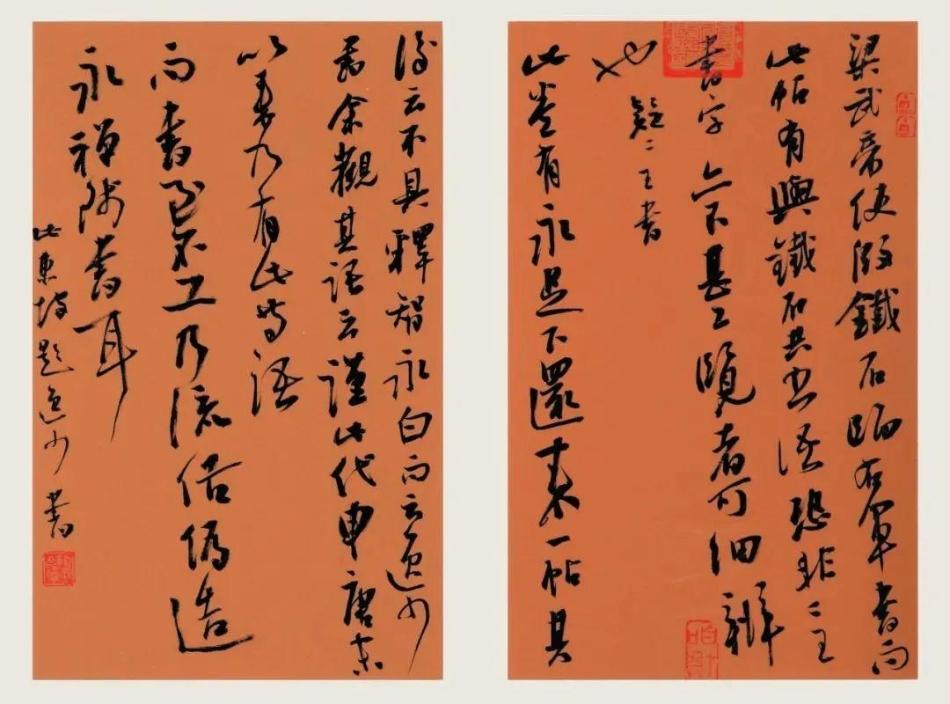 梁武帝使殷鐵石臨右軍書而
此帖有與鐵石共書語恐非二王
書字亦不甚工覽者可細辨
也 疑二王書
此卷有永足下還來一帖其
後云不具釋智永白而云逸少
書余觀其語云謹此代申唐末
以來乃有此等語
而書至不工乃流俗偽造
永禪師書耳
此東坡題逸少書